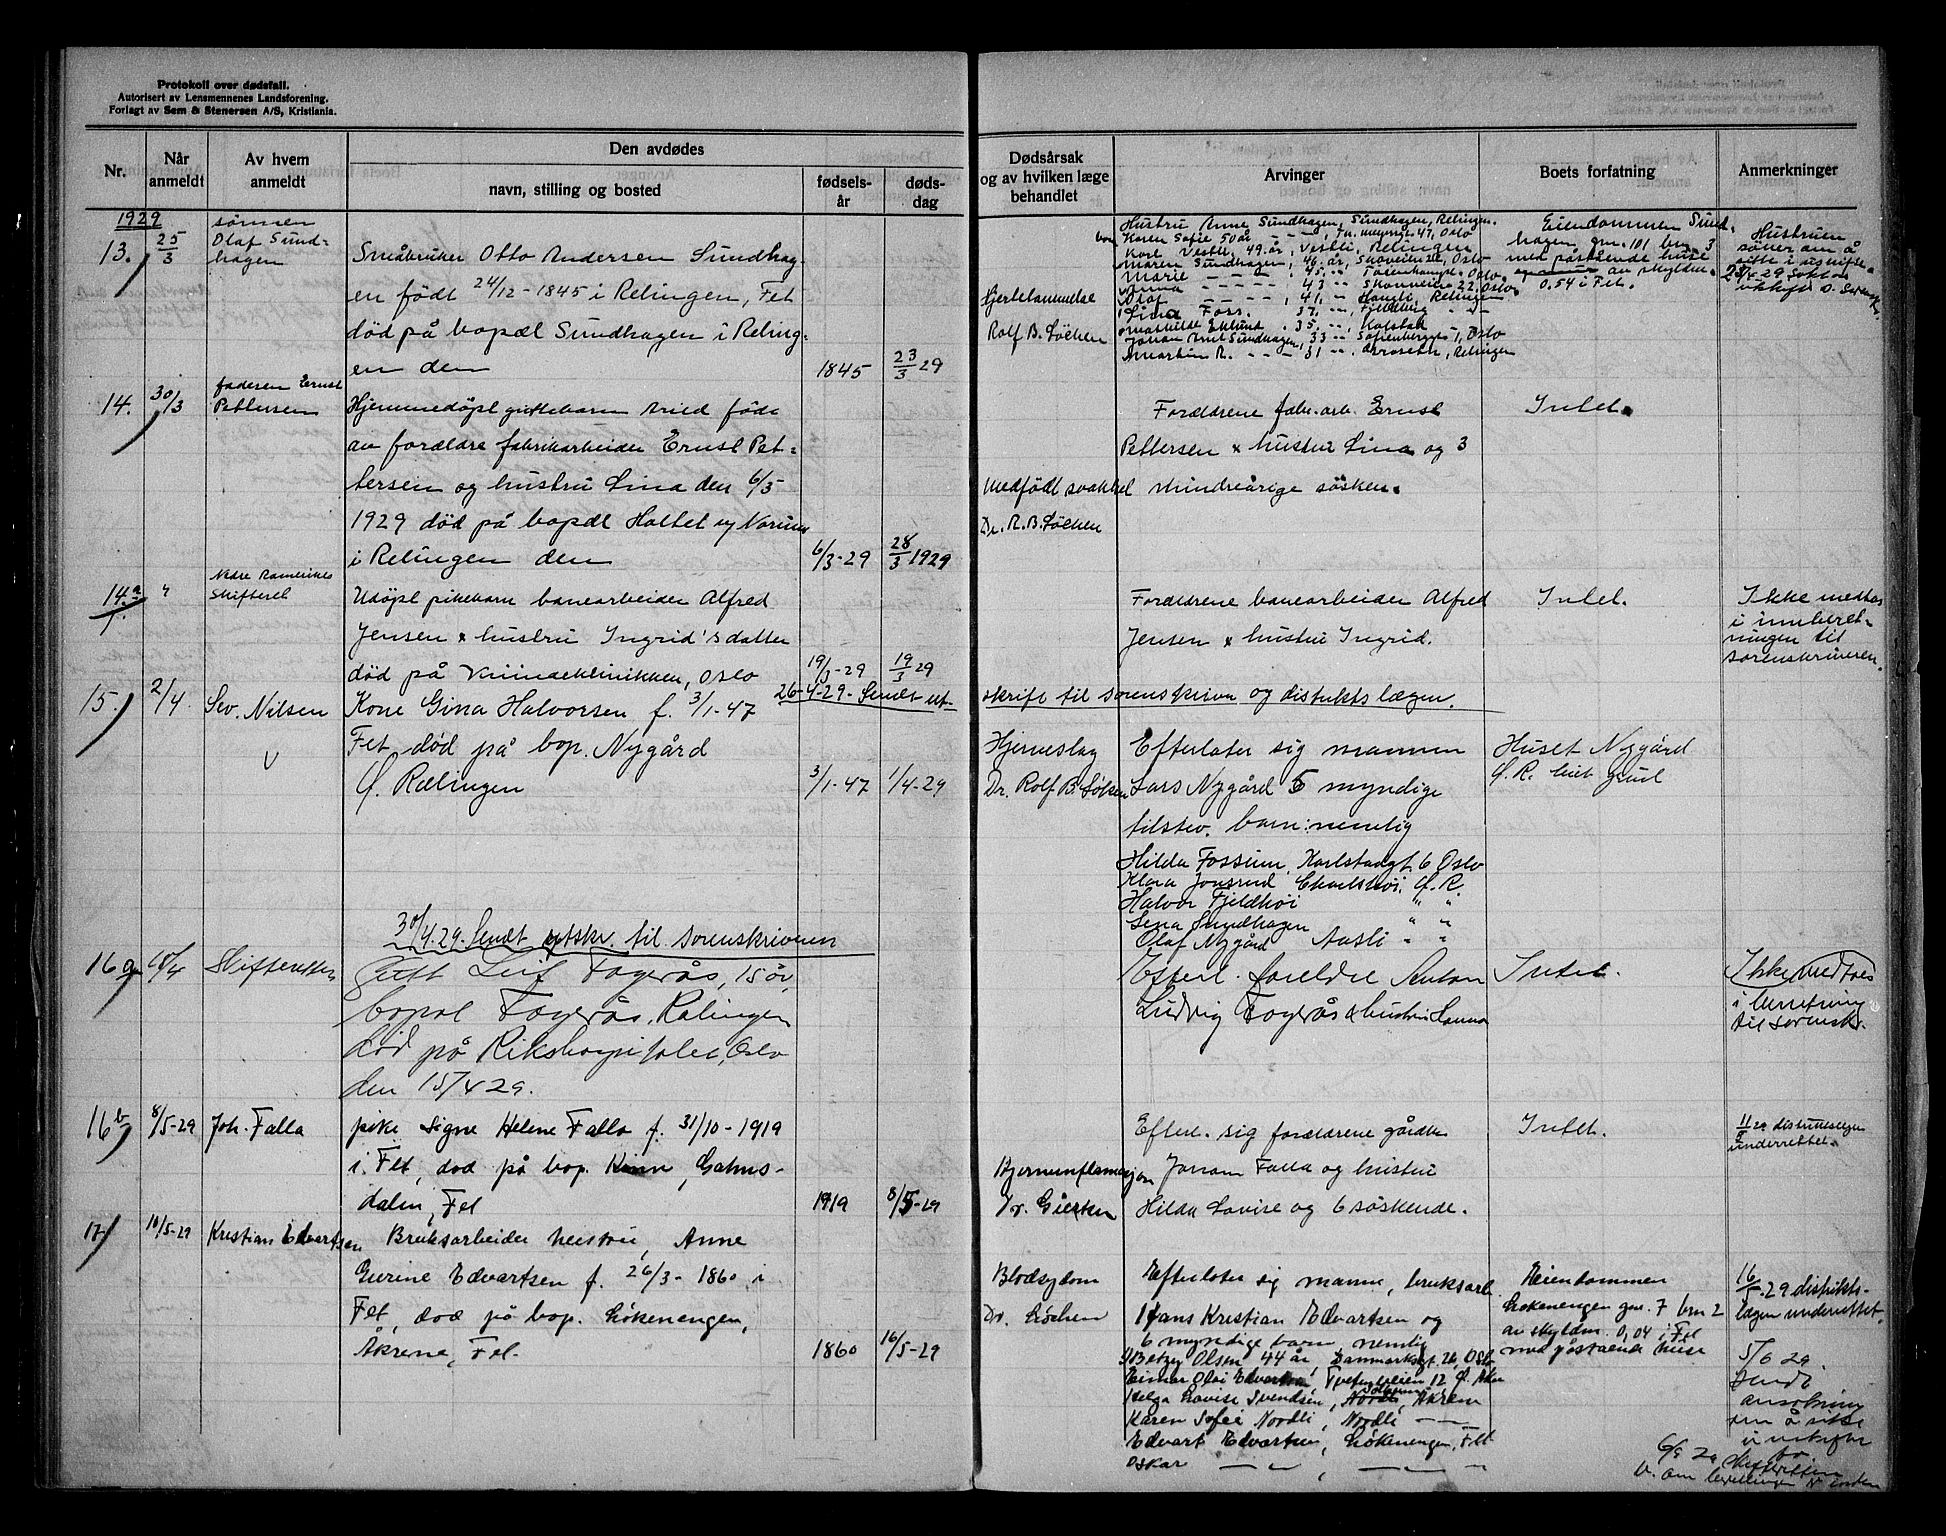 Protokoll over dødsfall.
Autorisert av Lensmennenes Landsforening.
Forlagt av Sem & Stenersen A/S, Kristiania.
Nr.
Når anmeldt
Av hvem anmeldt
Den avdødes
navn, stilling og bosted
fødsels-år
døds-dag
Dødsårsak og av hvilken læge behandlet
Arvinger
Boets forfatning
Anmerkninger
1929
13.
25/3
sønnen
Olaf Sund-
hagen
Småbruker Otto Andersen Sundhag-
en født 24/12-1845 i Relingen, Fet
død på bopæl Sundhagen i Reling-
en den
1845
23/3 29
Hjertelammelse
Rolf B. Løchen
Hustru Anne Sundhagen, Sundhagen, Relingen.
Karen Sofie 50 år
Karl Vestli, 49. år, Vestli, Relingen
Maren Sundhagen, 46. år, Skoveiensk, Oslo
Marie - - - - 45. " Tøienhaugt. Oslo
Anna - - - - 43 " Skovveien 22. Oslo
Olaf - - - -, 41, " Haugli, Relingen
Lina Foss. 37, " Fjeldberg " -
Mathilde Eklund . 35. ", Kolstad
Johan Emil Sundhagen, 33 " Sofienberggt. 1, Oslo
Martin R. - - - 31 " Relingen
Eiendommen Sund-
hagen, gnr. 101 bnr. 3
med påstående huse
av skylden
0.54 i Fet.
Hustruen
søker om å
sitte i uskifte
14.
30/3
faderen Ernst
Pettersen
Hjemmedøpt guttebarn Arild født
av forældre fabrikarbeider Ernst Pet-
tersen og hustru Lina den 6/3
1929 død på bopæl Holtet ny Norum
i Relingen den
6/3-29
28/3 1929
Medfødt svakhet
Dr. R. B. Løchen
Forældrene fabr.arb. Ernst
Pettersen & hustru Lina og 3
mindreårige søsken.
Intet.
14.a
"
Nedre Romerikes
Skifteret
Udøpt pikebarn banearbeider Alfred
Jensen & hustru Ingrid's datter
død på Kvindeklinikken, Oslo
19/3-29
19/3 29
Forældrene banearbeider Alfred
Jensen & hustru Ingrid.
Intet.
Ikke medtas
i innberet-
ningen til
sorenskriveren.
26-4-29. Sendt ut-
skrift til sorenskriver og distriktslægen.
15.
2/4.
Sev. Nilsen
Kone Gina Halvorsen f. 3/1-47
Fet, død på bop. Nygård
Ø. Rælingen
3/1-47
1/4-29
Hjerneslag
Dr. Rolf B. Løken
Efterlater sig mannen
Lars Nygård 5 myndige
tilstev. barn: nemlig
Hilda Fossum, Karlstadgt. 6 Oslo
Klara Jonsrud Ø. R.
Halvor Fjeldhøi " "
Lena Sundhagen " "
Olaf Nygård Aasli " "
Huset Nygård
Ø. R. uten grunn
30/4.29. Sendt utskr. til sorenskriveren
16a
18/4
Skifteretten
Gutt Leif Fagerås, 15 år,
bopæl Fagerås, Rælingen
død på Rikshospitalet, Oslo
den 15/4 29.
Efterl. foreldre Anton
Ludvig Fagerås & hustru Hanna
Intet.
Ikke medtaes
i beretning
til sorenskr.
16b
8/5-29
Joh. Falla
pike Signe Helene Falla f. 31/10-1919
i Fet, død på bop. Kinn, Gahns-
dalen, Fet
1919
8/5-29
Hjerneinflamasjon
Dr. Giertsen
Efterl. sig forældrene gårdbr.
Johan Falla og hustru
Hilda Lovise og 6 søskende.
Intet.
11/5 29 distriktslægen
underrettet.
17
10/5-29
Kristian Edvartsen
Bruksarbeider hustru, Anne
Gurine Edvartsen f. 26/3-1860 i
Fet, død på bop. Løkenengen,
Åkrene, Fet.
1860
16/5-29
Blodsydom
Dr. Løchen
Efterlater sig mann, bruksarb.
Hans Kristian Edvartsen og
6 myndige barn nemlig
Betzy Olsen 44 år, Danmarksgt. 26, Oslo
Einar Olai Edvartsen 12 Ø. Aker
Helga Lovise Svendsen, Åkrene
Karen Sofie Nordli, Nordli - -
Edvart Edvartsen, Løkenengen, Fet
Oskar - - , - -
Eiendommen
Løkenengen gnr. 7 bnr 2
av skyldm. 0,04 i Fet
med påstående huse
16/5.29 distrikts-
lægen underrettet.
5/6 29.
Sendt
ansøkning
om å sitte
i uskifte
for
Skifteretten